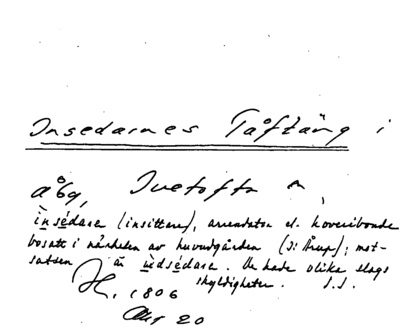 Insedarnes Tåftäng i
åbg, Ivetofta sn,
ìnsédare (insittare), arrendator el. hoveribonde
bosatt i närheten av huvudgården (i Årup); mot-
satsen är ùdsédare. De hade olika slags
skyldigheter. S.S.
H. 1806
Akt 20